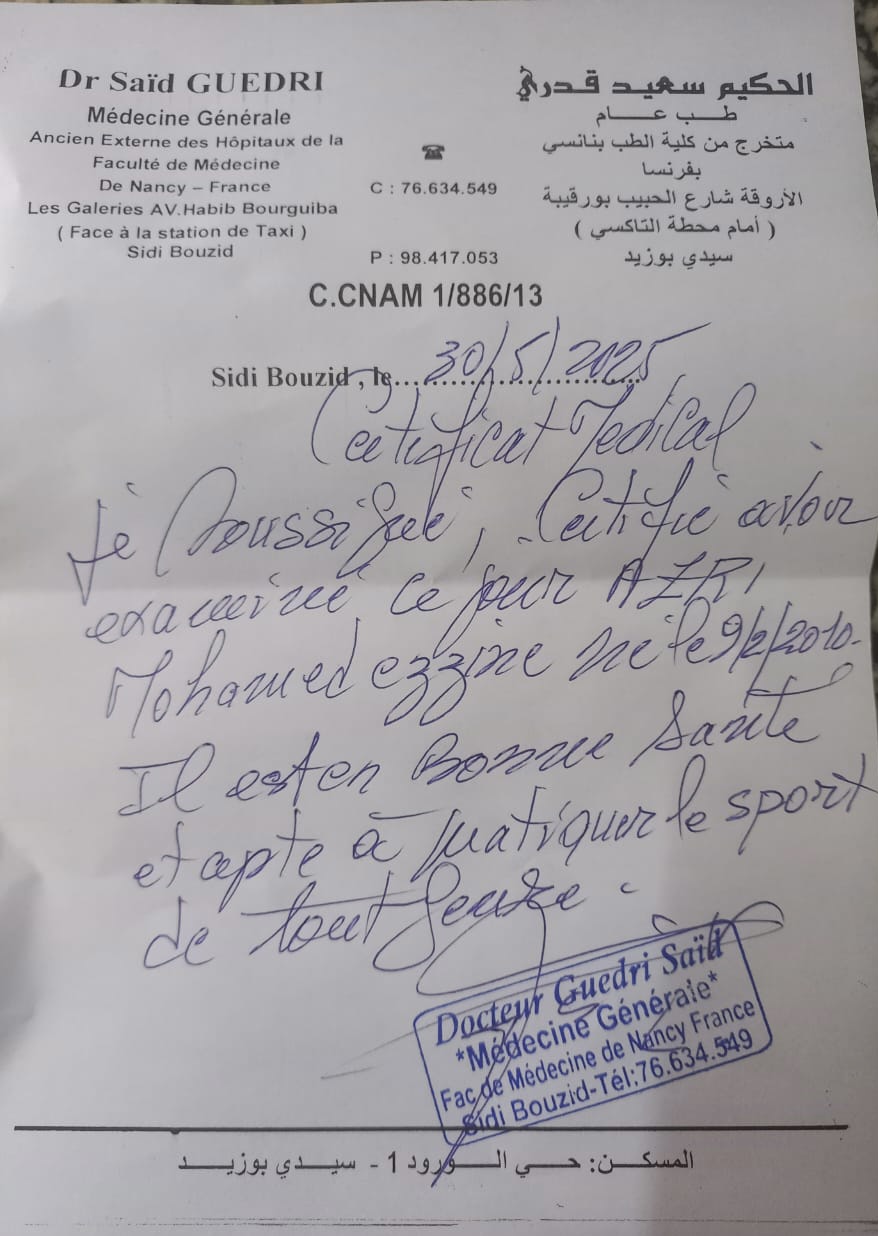 Dr Saïd GUEDRI
Médecine Générale
Ancien Externe des Hôpitaux de la
Faculté de Médecine
De Nancy – France
Les Galeries AV.Habib Bourguiba
( Face à la station de Taxi )
Sidi Bouzid
☎
C : 76.634.549
P : 98.417.053
الحكيم سعيد قدري
طب عام
متخرج من كلية الطب بنانسي
بفرنسا
الأروقة شارع الحبيب بورقيبة
( أمام محطة التاكسي )
سيدي بوزيد
C.CNAM 1/886/13
Sidi Bouzid , le 30/5/2025
Certificat Medical
Je Soussigné, Certifie avoir
examiné ce jour AZRI
Mohamed ezzine né le 9/2/2010.
Il est en Bonne Santé
et apte à pratiquer le sport
de tout genre.
Docteur Guedri Saïd
*Médecine Générale*
Fac de Médecine de Nancy France
Sidi Bouzid-Tél:76.634.549
المسكن: حي الورود 1 - سيدي بوزيد